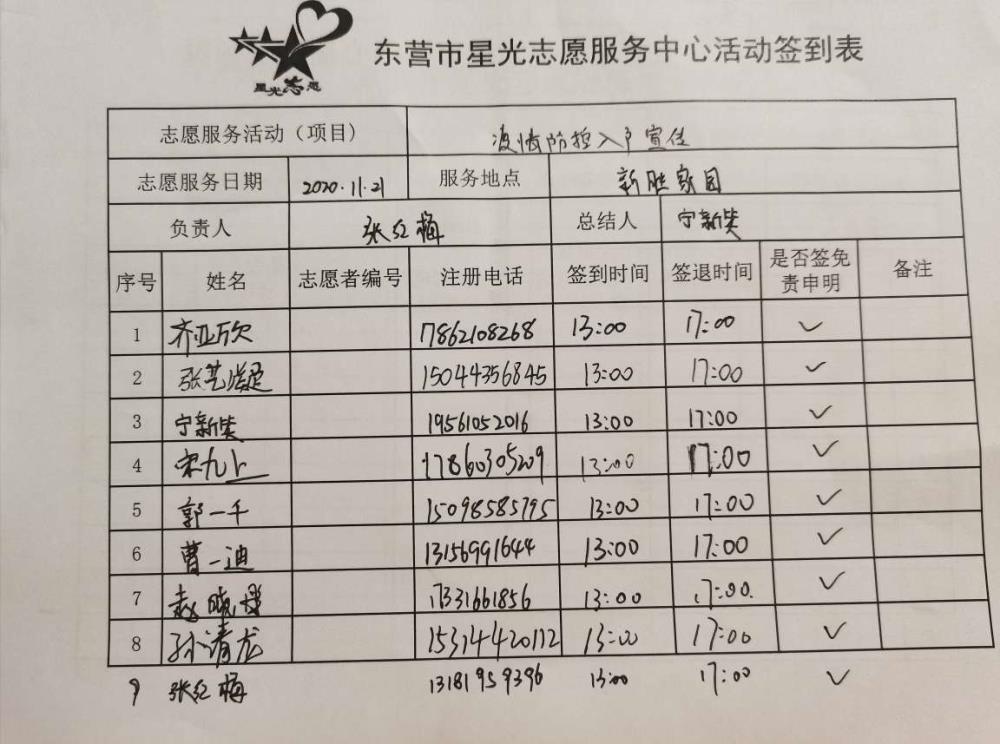 星光志愿
东营市星光志愿服务中心活动签到表
志愿服务活动（项目） 疫情防控入户宣传
志愿服务日期 2020.11.21 服务地点 新胜家园
负责人 张红梅 总结人 宁新笑
序号 姓名 志愿者编号 注册电话 签到时间 签退时间 是否签免责申明 备注
1 齐亚欣 17862108268 13:00 17:00 ✓
2 张艺 15044356845 13:00 17:00 ✓
3 宁新笑 19561052016 13:00 17:00 ✓
4 宋九上 17860305209 13:00 17:00 ✓
5 郭一千 15098585795 13:00 17:00 ✓
6 曹一迪 13156991644 13:00 17:00 ✓
7 赵晓丹 17331661856 13:00 17:00. ✓
8 孙清龙 15314420112 13:00 17:00 ✓
9 张红梅 13181959396 13:00 17:00 ✓